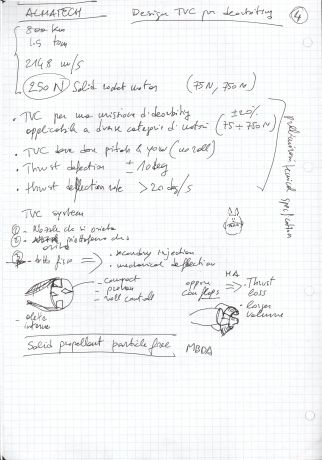 ALMATECH Design TVC per deorbiting 4
800 km
1.5 ton
2148 m/s
250 N Solid rocket motor (75N, 750N)
• TVC per una missione di deorbiting ±20%
applicabile a diverse categorie di motori (75 ÷ 750N)
• TVC deve dare pitch & yaw (no roll)
• Thrust deflection ± 10 deg
• thrust deflection rate > 20 deg/s
preliminary technical specification
TVC system
1 - Nozzle che si orienta
2 - piattaforma che si
orienta
3 - tutto fisso => • secondary injection
• mechanical deflection
- compact
- proven
- roll control
- alette
interne
oppure
con flaps
MA
=> - Thrust
loss
- larger
volume
Solid propellant particle free MBDA